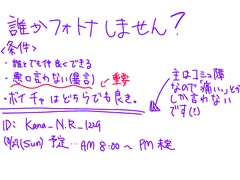 誰かフォトナしません?
<条件>
・誰とでも仲良くできる
・悪口言わない(暴言) 重要
・ボイチャはどちらでも良き。
主はコミュ障
なので「痛い。」とか
しか言わない
です(?)
ID: Kana_N.R_1229
(Sun) 予定... AM 8:00〜 PM 未定